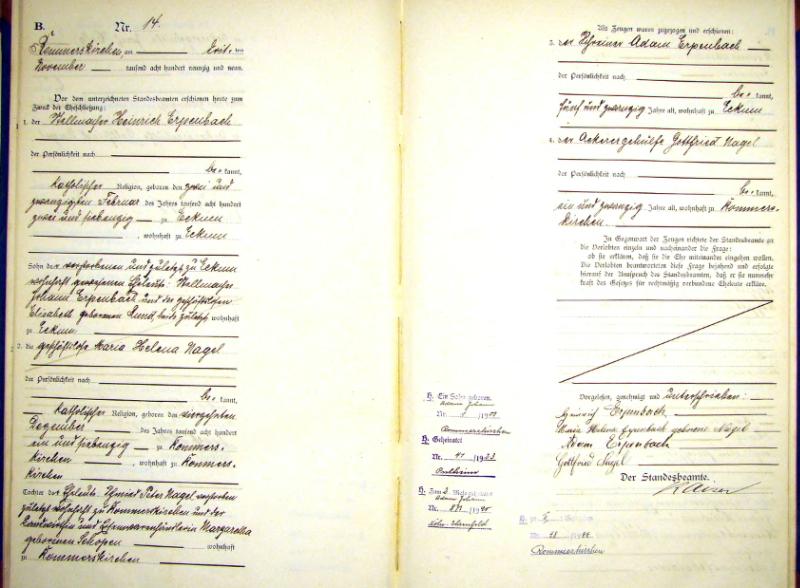 B. Nr. 14.
Rommerskirchen, am
November tausend acht hundert neunzig und neun.
Vor dem unterzeichneten Standesbeamten erschienen heute zum
Zweck der Eheschließung:
1. der Heinrich Erpenbach
der Persönlichkeit nach
be- kannt,
katholischer Religion, geboren den zwei und
zwanzigsten Februar des Jahres tausend acht hundert
zwei und siebenzig zu Eckum
, wohnhaft zu Eckum
Sohn der verstorbenen und zuletzt zu Eckum
wohnhaft gewesenen Eheleute:
Johann Erpenbach und der geschäftslosen
Elisabeth geborenen wohnhaft
zu Eckum
2. die geschäftslose Maria Helena Nagel
der Persönlichkeit nach
be- kannt,
katholischer Religion, geboren den vierzehnten
Dezember des Jahres tausend acht hundert
ein und siebenzig zu Rommers-
kirchen, wohnhaft zu Rommers-
kirchen
Tochter der Eheleute: Schmied Peter Nagel verstorben
zuletzt wohnhaft zu Rommerskirchen und der
und Margaretha
geborenen Schopen wohnhaft
zu Rommerskirchen
Als Zeugen waren zugezogen und erschienen:
3. der Schreiner Adam Erpenbach
der Persönlichkeit nach
be- kannt,
fünf und zwanzig Jahre alt, wohnhaft zu Eckum
4. der Ackergehülfe Gottfried Nagel
der Persönlichkeit nach
be- kannt,
ein und zwanzig Jahre alt, wohnhaft zu Rommers-
kirchen.
In Gegenwart der Zeugen richtete der Standesbeamte an
die Verlobten einzeln und nacheinander die Frage:
ob sie erklären, daß sie die Ehe miteinander eingehen wollen.
Die Verlobten beantworteten diese Frage bejahend und erfolgte
hierauf der Ausspruch des Standesbeamten, daß er sie nunmehr
kraft des Gesetzes für rechtmäßig verbundene Eheleute erkläre.
Vorgelesen, genehmigt und unterschrieben:
Heinrich Erpenbach
Maria Helena Erpenbach geborene Nagel
Adam Erpenbach
Gottfried Nagel
Der Standesbeamte.
H. Ein Sohn geboren.
Adam Johann
Nr. 19
Rommerskirchen
H. Geheiratet
Nr. 41 1933
Pulheim
H. Zum 2.
Adam Johann
Nr. 19
Köln-Ehrenfeld
Nr. 19
Rommerskirchen